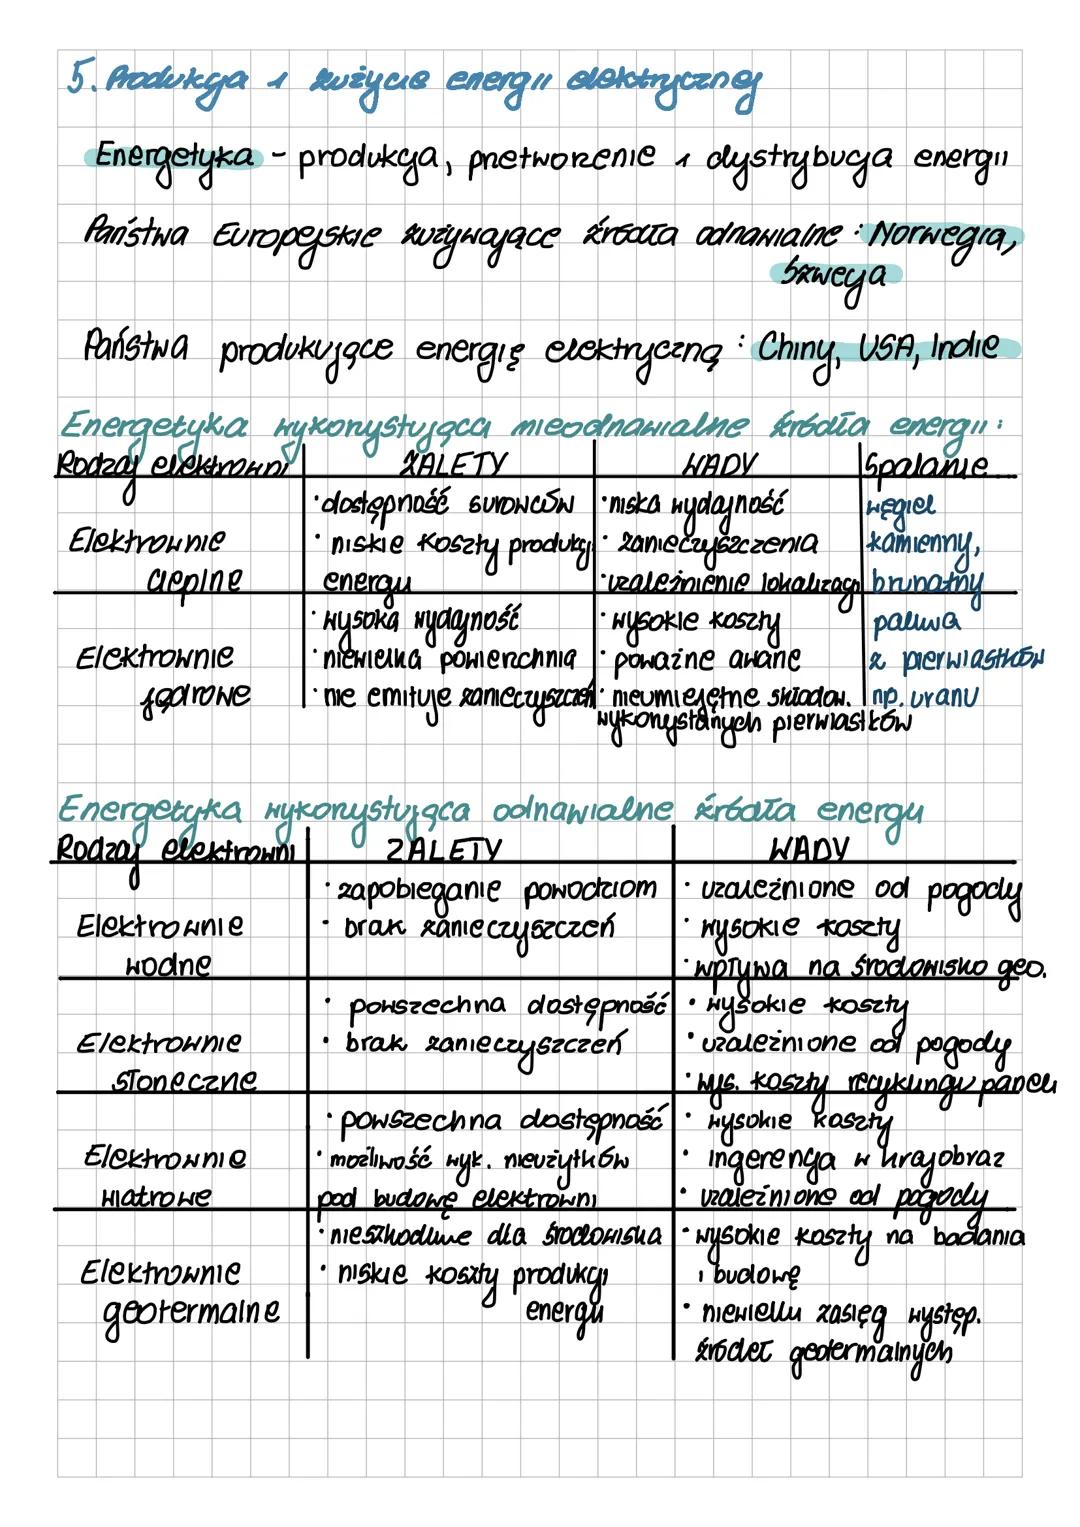 5. Produkcja i zużycie energii elektrycznej
Energetyka - produkcja, przetworzenie i dystrybucja energii
Państwa Europejskie zużywające źródła odnawialne: Norwegia,
Szwecja
Państwa produkujące energię elektryczną: Chiny, USA, Indie
Energetyka wykorzystująca nieodnawialne źródła energii:
Rodzaj elektrowni ZALETY WADY Spalanie...
Elektrownie cieplne
• dostępność surowców
• niskie koszty produkcji
energii
• niska wydajność
• zanieczyszczenia
• uzależnienie lokalizacji
węgiel
kamienny,
brunatny
Elektrownie
jądrowe
• wysoka wydajność
• niewielka powierzchnia
• nie emituje zanieczyszczeń
• wysokie koszty
• poważne awarie
• nieumiejętne składow.
wykorzystanych pierwiastków
paliwa
z pierwiastków
np. uranu
Energetyka wykorzystująca odnawialne źródła energii
Rodzaj elektrowni ZALETY WADY
Elektrownie
wodne
• zapobieganie powodziom
• brak zanieczyszczeń
• uzależnione od pogody
• wysokie koszty
• wpływa na środowisko geo.
Elektrownie
słoneczne
• powszechna dostępność
• brak zanieczyszczeń
• wysokie koszty
• uzależnione od pogody
• wys. koszty recyklingu paneli
Elektrownie
wiatrowe
• powszechna dostępność
• możliwość wyk. nieużytków
pod budowę elektrowni
• wysokie koszty
• ingerencja w krajobraz
• uzależnione od pogody
Elektrownie
geotermalne
• nieszkodliwe dla środowiska
• niskie koszty produkcji
energii
• wysokie koszty na badania
i budowę
• niewielki zasięg występ.
źródeł geotermalnych